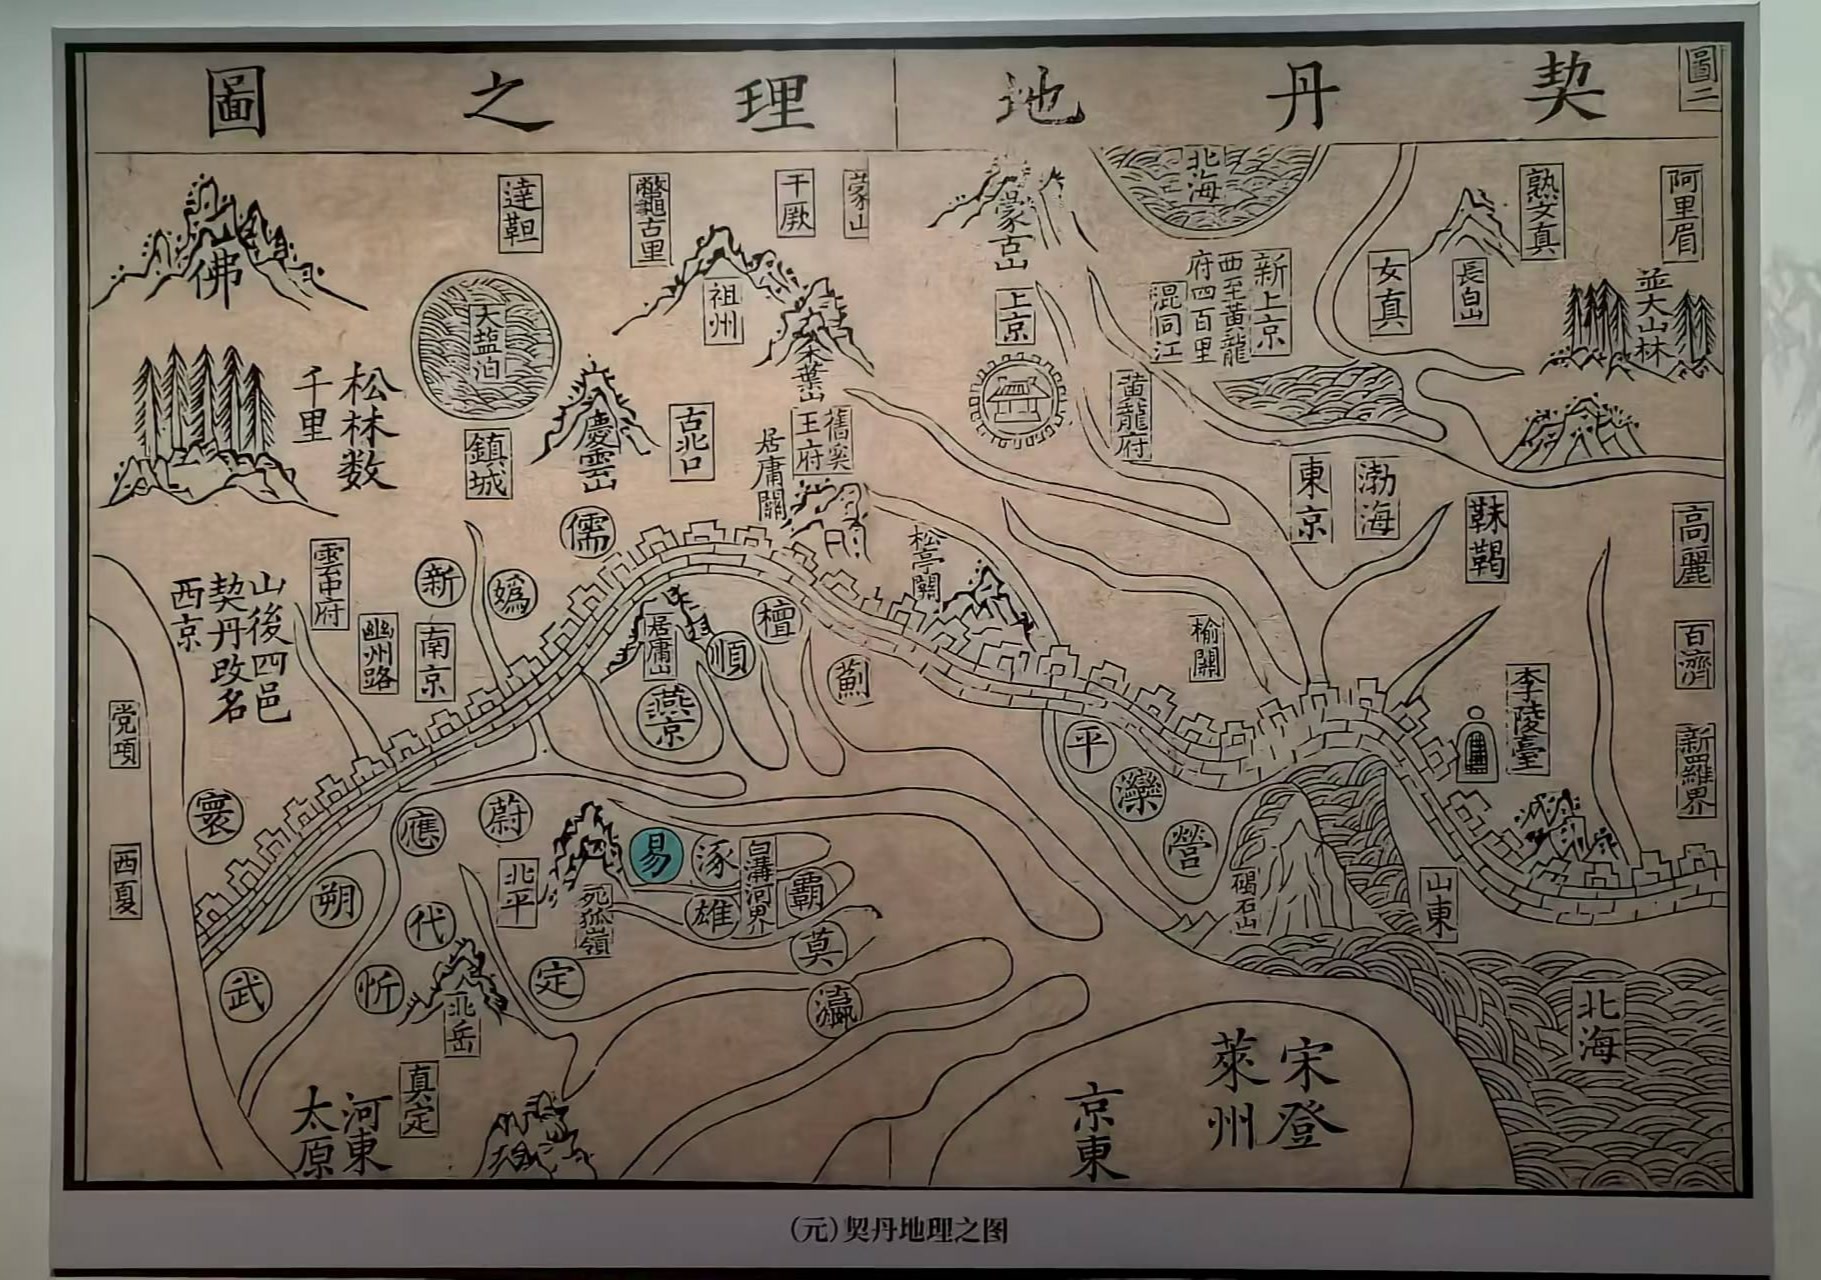 圖二
契丹地理之圖
阿里眉
熟女真
長白山
女真
並大山林
北海
新上京
西至黃龍
府四百里
混同江
黃龍府
蒙古山
上京
渤海
東京
靺鞨
高麗
百濟
新羅界
李陵臺
榆關
松亭關
蒙山
千厥
鱉古里
達靼
祖州
木葉山
舊奚
王府
居庸關
古北口
慶雲山
大盐泊
鎮城
佛
松林数
千里
儒
媯
新
雲中府
幽州路
南京
山後四邑
契丹改名
西京
党項
西夏
檀
順
薊
居庸山
燕京
平
灤
營
碣石山
山東
北海
寰
應
蔚
朔
武
代
忻
北岳
北平
易
涿
白溝河界
霸
雄
莫
瀛
死狐嶺
定
真定
河東
太原
宋登
萊州
京東
(元)契丹地理之图